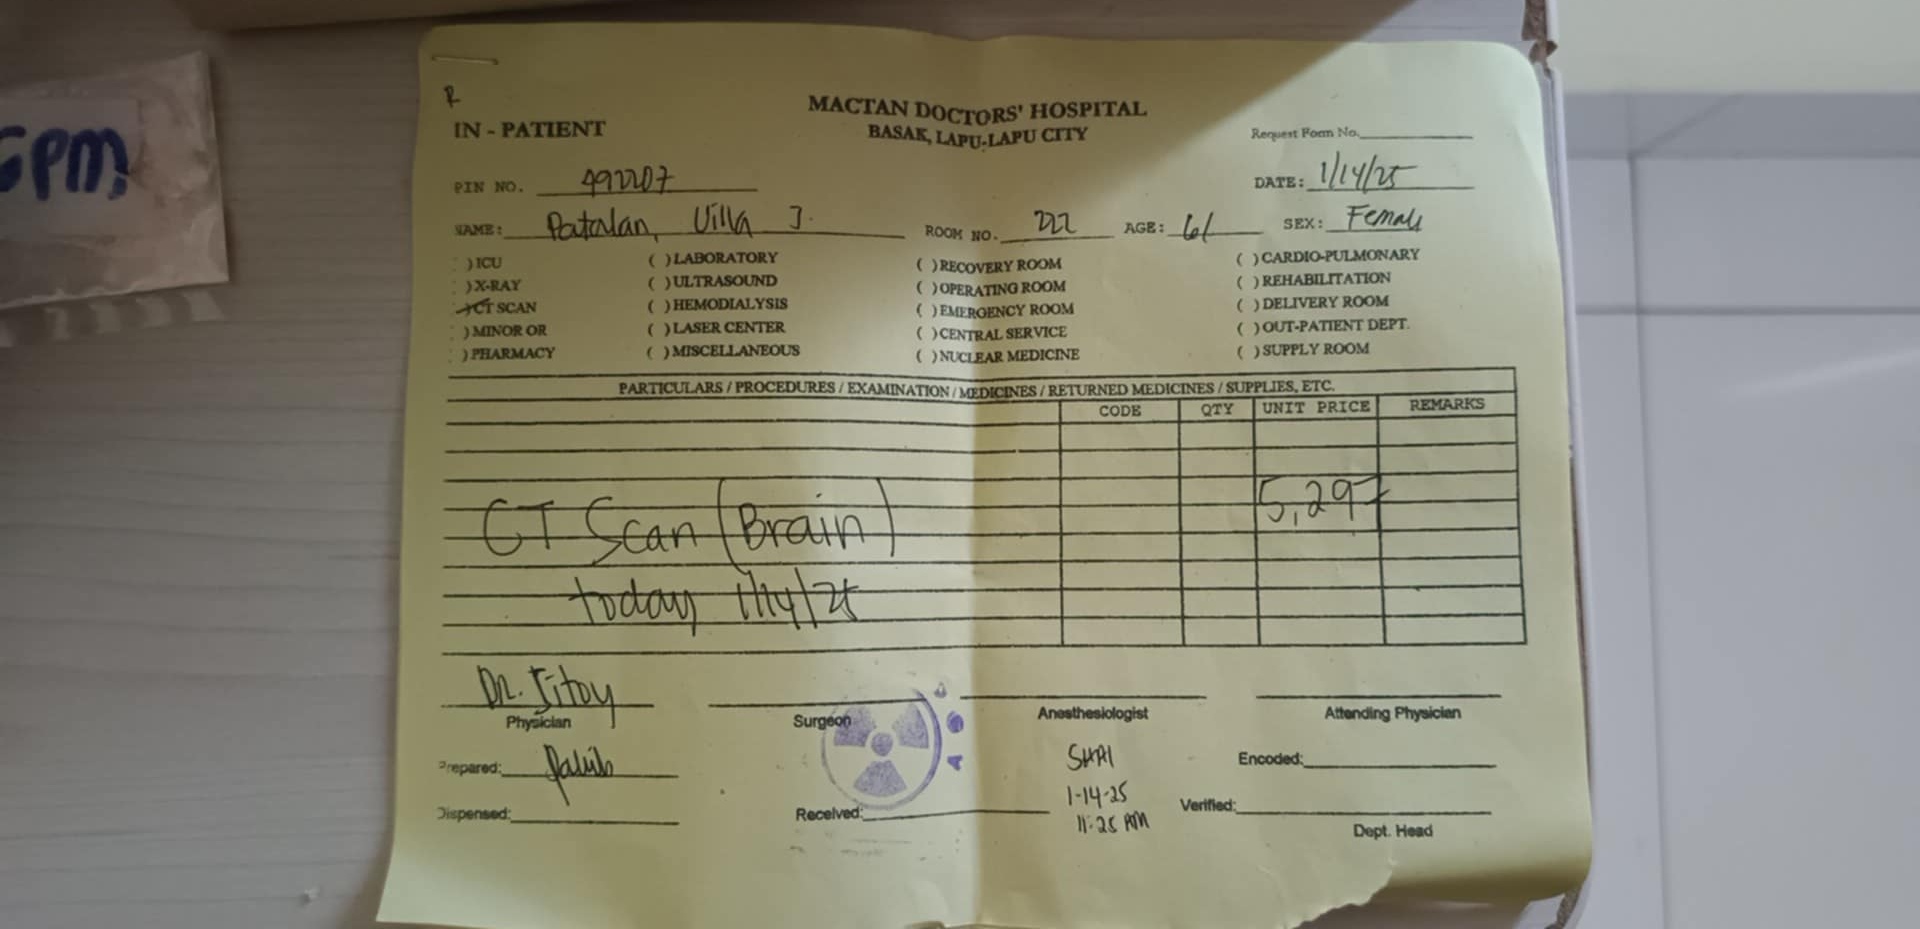 6PM
R
IN - PATIENT
MACTAN DOCTORS' HOSPITAL
BASAK, LAPU-LAPU CITY
Request Form No.
PIN NO. 492207
DATE: 1/14/25
NAME: Patalan, Villa J.
ROOM NO. 222
AGE: 61
SEX: Female
) ICU
( ) LABORATORY
( ) RECOVERY ROOM
( ) CARDIO-PULMONARY
) X-RAY
( ) ULTRASOUND
( ) OPERATING ROOM
( ) REHABILITATION
) CT SCAN
( ) HEMODIALYSIS
( ) EMERGENCY ROOM
( ) DELIVERY ROOM
) MINOR OR
( ) LASER CENTER
( ) CENTRAL SERVICE
( ) OUT-PATIENT DEPT.
) PHARMACY
( ) MISCELLANEOUS
( ) NUCLEAR MEDICINE
( ) SUPPLY ROOM
PARTICULARS / PROCEDURES / EXAMINATION / MEDICINES / RETURNED MEDICINES / SUPPLIES, ETC.
CODE QTY UNIT PRICE REMARKS
CT Scan (Brain) 5,297
today 1/14/25
Dr.
Physician
Surgeon
Anesthesiologist
Attending Physician
Prepared:
SHAI
1-14-25
11:25 AM
Encoded:
Dispensed:
Received:
Verified:
Dept. Head